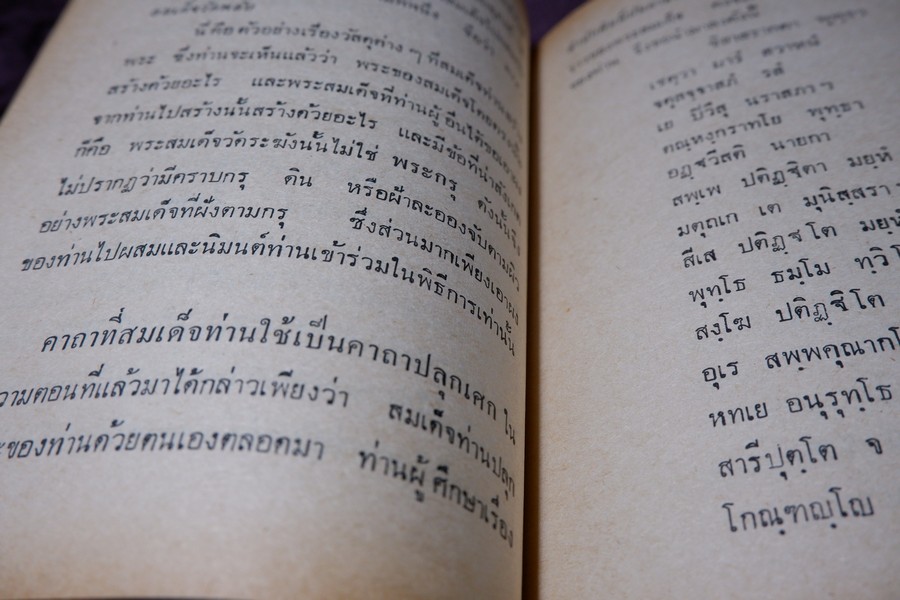 นี่คือตัวอย่างเรื่องวัสดุต่าง ๆ ที่สมเด็จท่าน
พระ ซึ่งท่านจะเห็นแล้วว่า พระของสมเด็จโต
สร้างด้วยอะไร และพระสมเด็จที่ท่านผู้อื่นได้ขอเอา
จากท่านไปสร้างนั้นสร้างด้วยอะไร และมีข้อที่น่าสังเกต
ก็คือ พระสมเด็จวัดระฆังนั้นไม่ใช่ พระกรุ ดังนั้นจึง
ไม่ปรากฏว่ามีคราบกรุ ดิน หรือฝ้าละอองจับตามผิว
อย่างพระสมเด็จที่ฝังตามกรุ ซึ่งส่วนมากเพียงเอาผง
ของท่านไปผสมและนิมนต์ท่านเข้าร่วมในพิธีการเท่านั้น
คาถาที่สมเด็จท่านใช้เป็นคาถาปลุกเศก ใน
วามตอนที่แล้วมาได้กล่าวเพียงว่า สมเด็จท่านปลุก
ะของท่านด้วยตนเองตลอดมา ท่านผู้ศึกษาเรื่อง
เชตฺวา มารํ สวาหนํ
จตุสจฺจาสภํ รสํ
เย ปิวึสุ นราสภา ฯ
ตณฺหงฺกราทโย พุทฺธา
อฏฺฐวีสติ นายกา
สพฺเพ ปติฏฺฐิตา มยฺหํ
มตฺถเก เต มุนิสฺสรา
สีเส ปติฏฺฐิโต มยฺหํ
พุทฺโธ ธมฺโม ทฺวิโ
สงฺโฆ ปติฏฺฐิโต
อุเร สพฺพคุณากโ
หทเย อนุรุทฺโธ
สารีปุตฺโต จ
โกณฺฑญฺโญ